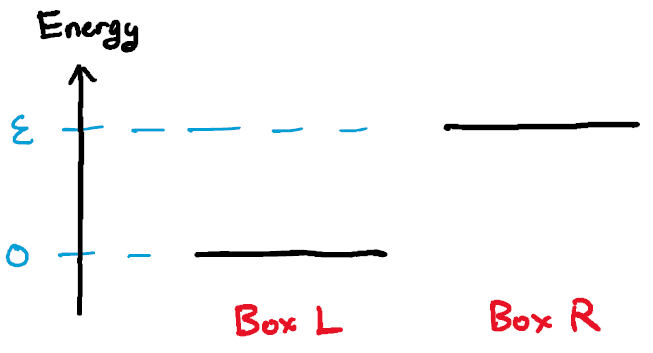 Energy
ε
0
Box L
Box R